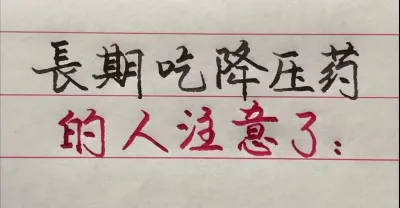 長期吃降压药
的人注意了：